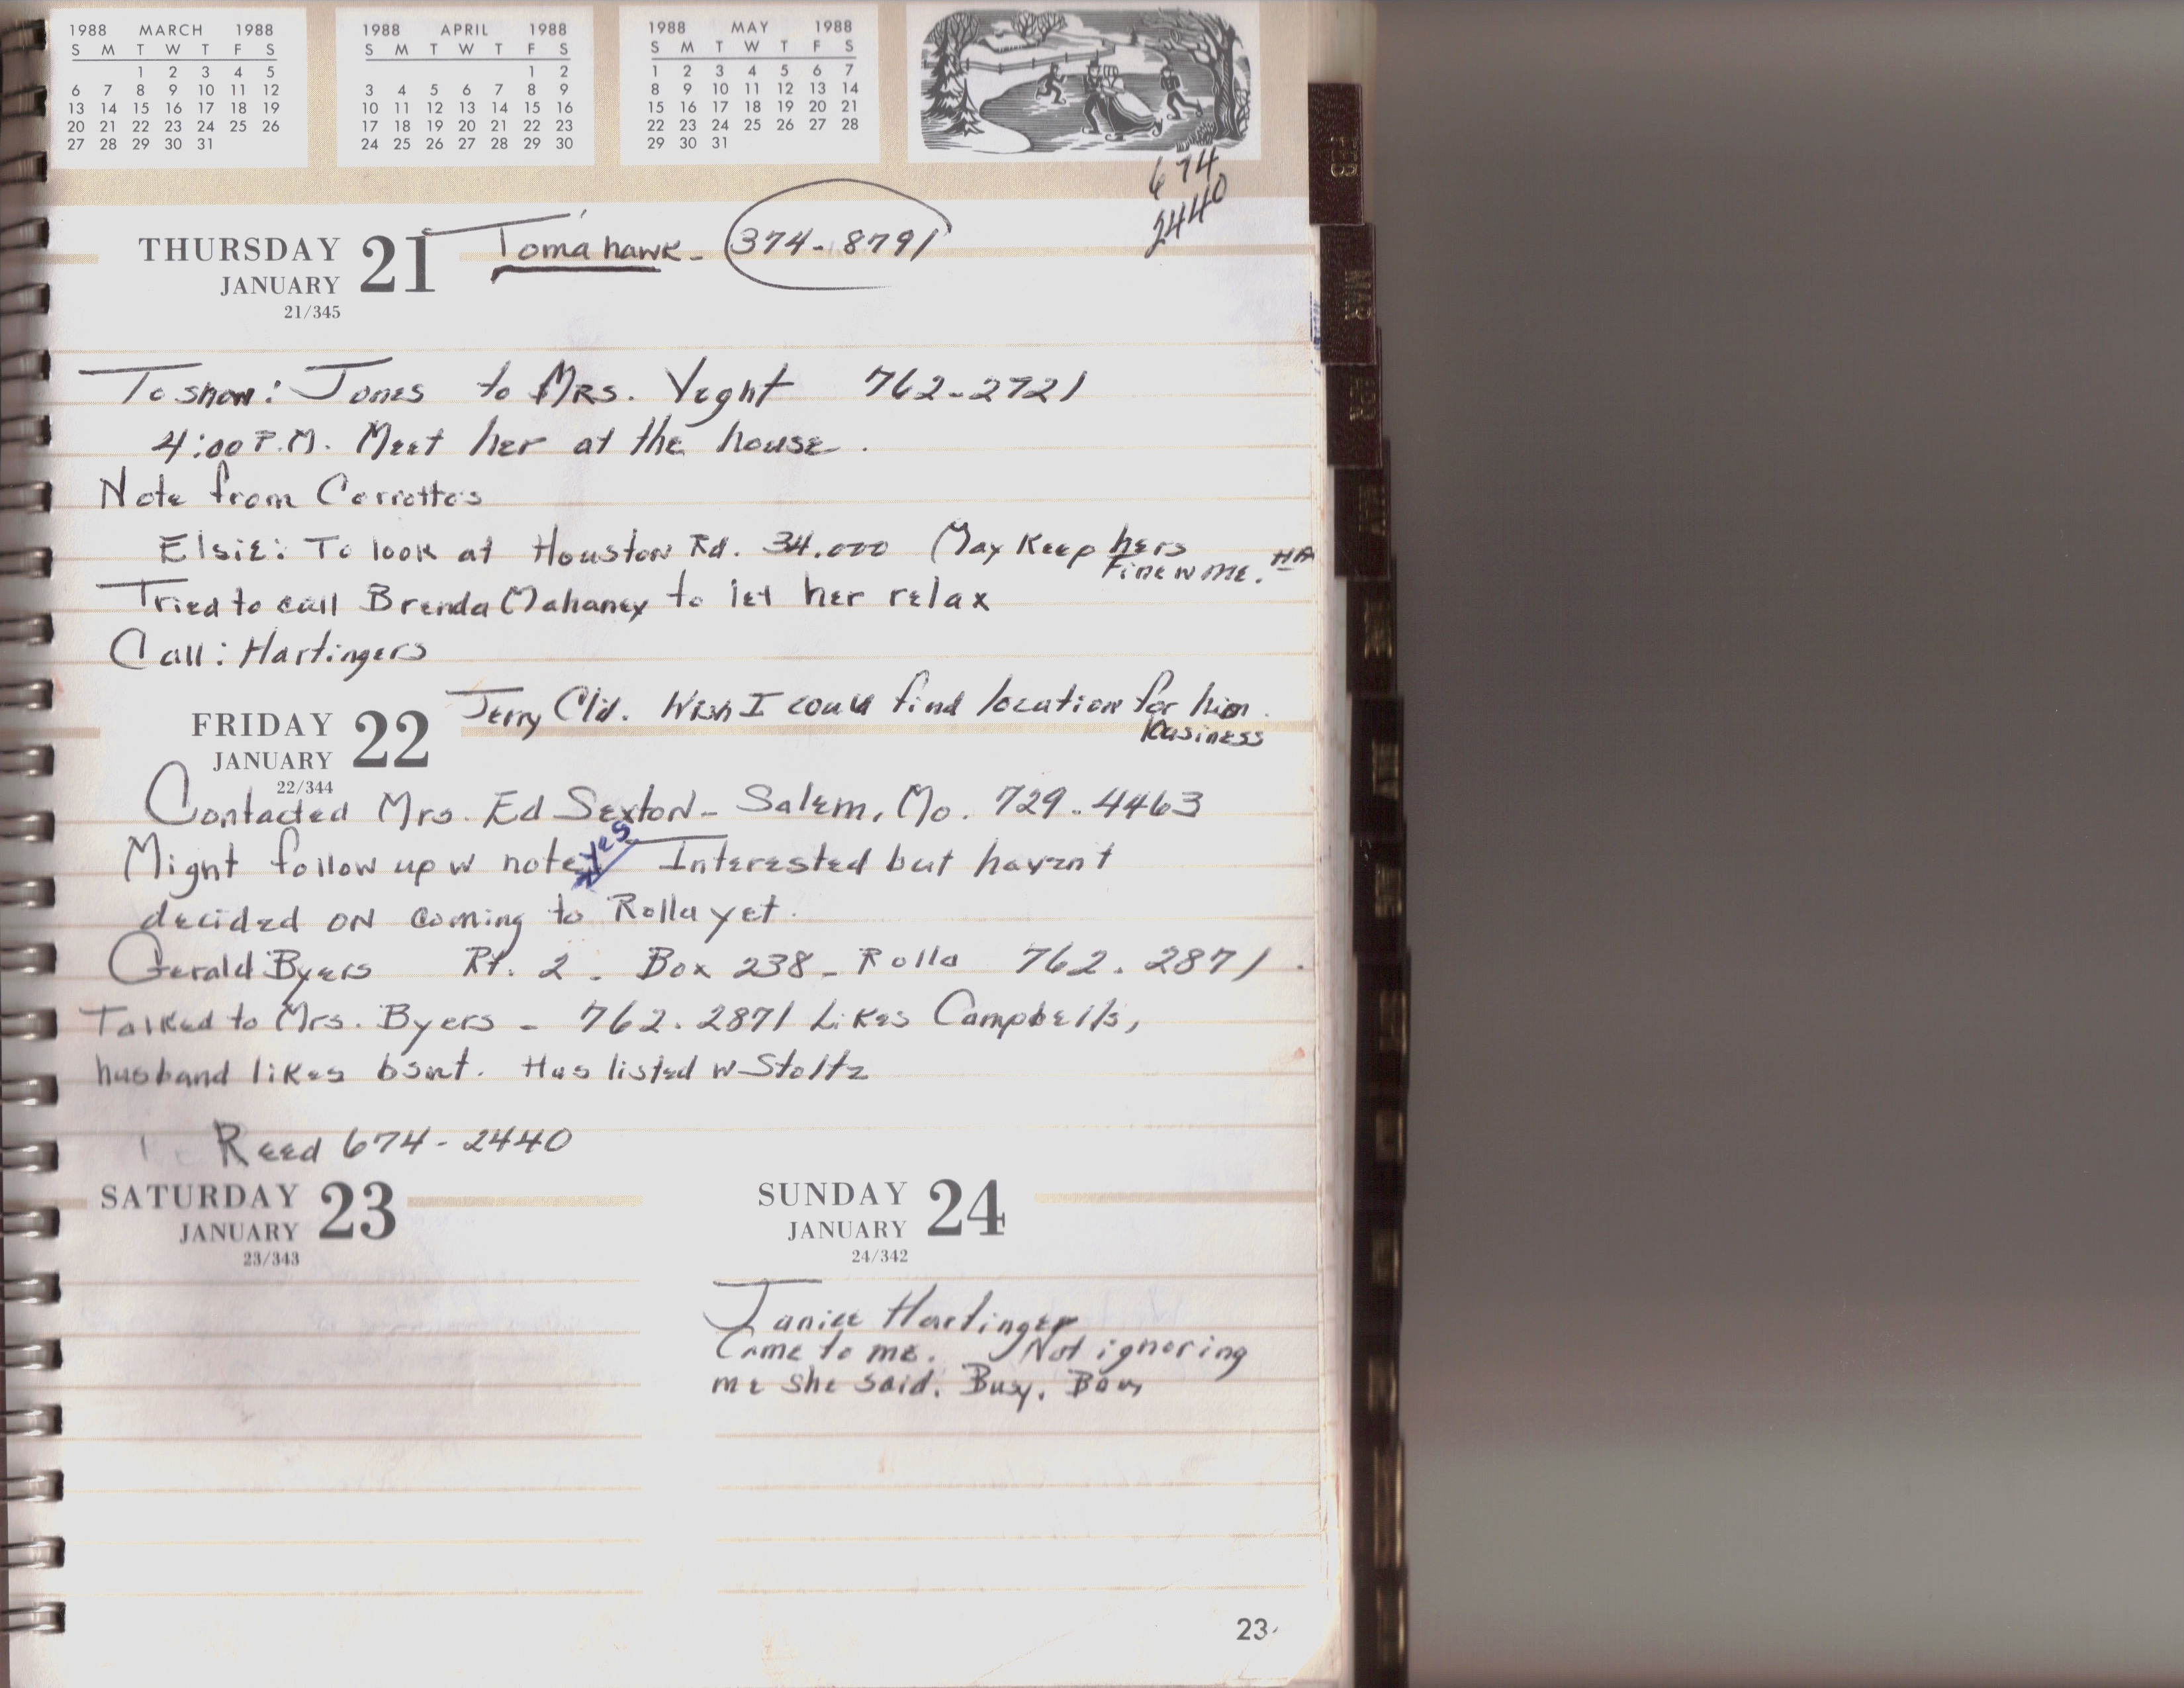 1988 MARCH 1988
S M T W T F S
1 2 3 4 5
6 7 8 9 10 11 12
13 14 15 16 17 18 19
20 21 22 23 24 25 26
27 28 29 30 31
1988 APRIL 1988
S M T W T F S
1 2
3 4 5 6 7 8 9
10 11 12 13 14 15 16
17 18 19 20 21 22 23
24 25 26 27 28 29 30
1988 MAY 1988
S M T W T F S
1 2 3 4 5 6 7
8 9 10 11 12 13 14
15 16 17 18 19 20 21
22 23 24 25 26 27 28
29 30 31
674
2440
FEB
MAR
APR
MAY
THURSDAY 21
JANUARY
21/345
Tomahawk - 374-8791
To show: Jones to Mrs. Veght 762-2721
4:00 P.M. Meet her at the house.
Note from Corrottos
Elsie: To look at Houston Rd. 34.000 (May Keep hers
Fine w me. HA
Tried to call Brenda Mahaney to let her relax
Call: Hartingers
FRIDAY 22
JANUARY
22/344
Jerry Cld. Wish I could find location for him.
business
Contacted Mrs. Ed Sexton - Salem, Mo. 729-4463
Might follow up w note Yes Interested but havent
decided on coming to Rolla yet.
Gerald Byers Rt. 2 - Box 238 - Rolla 762-2871.
Talked to Mrs. Byers - 762-2871 Likes Campbells,
husband likes bsmt. Has listed w Stoltz
Reed 674-2440
SATURDAY 23
JANUARY
23/343
SUNDAY 24
JANUARY
24/342
Janice Hartinger
Came to me. Not ignoring
me she said. Busy.
23